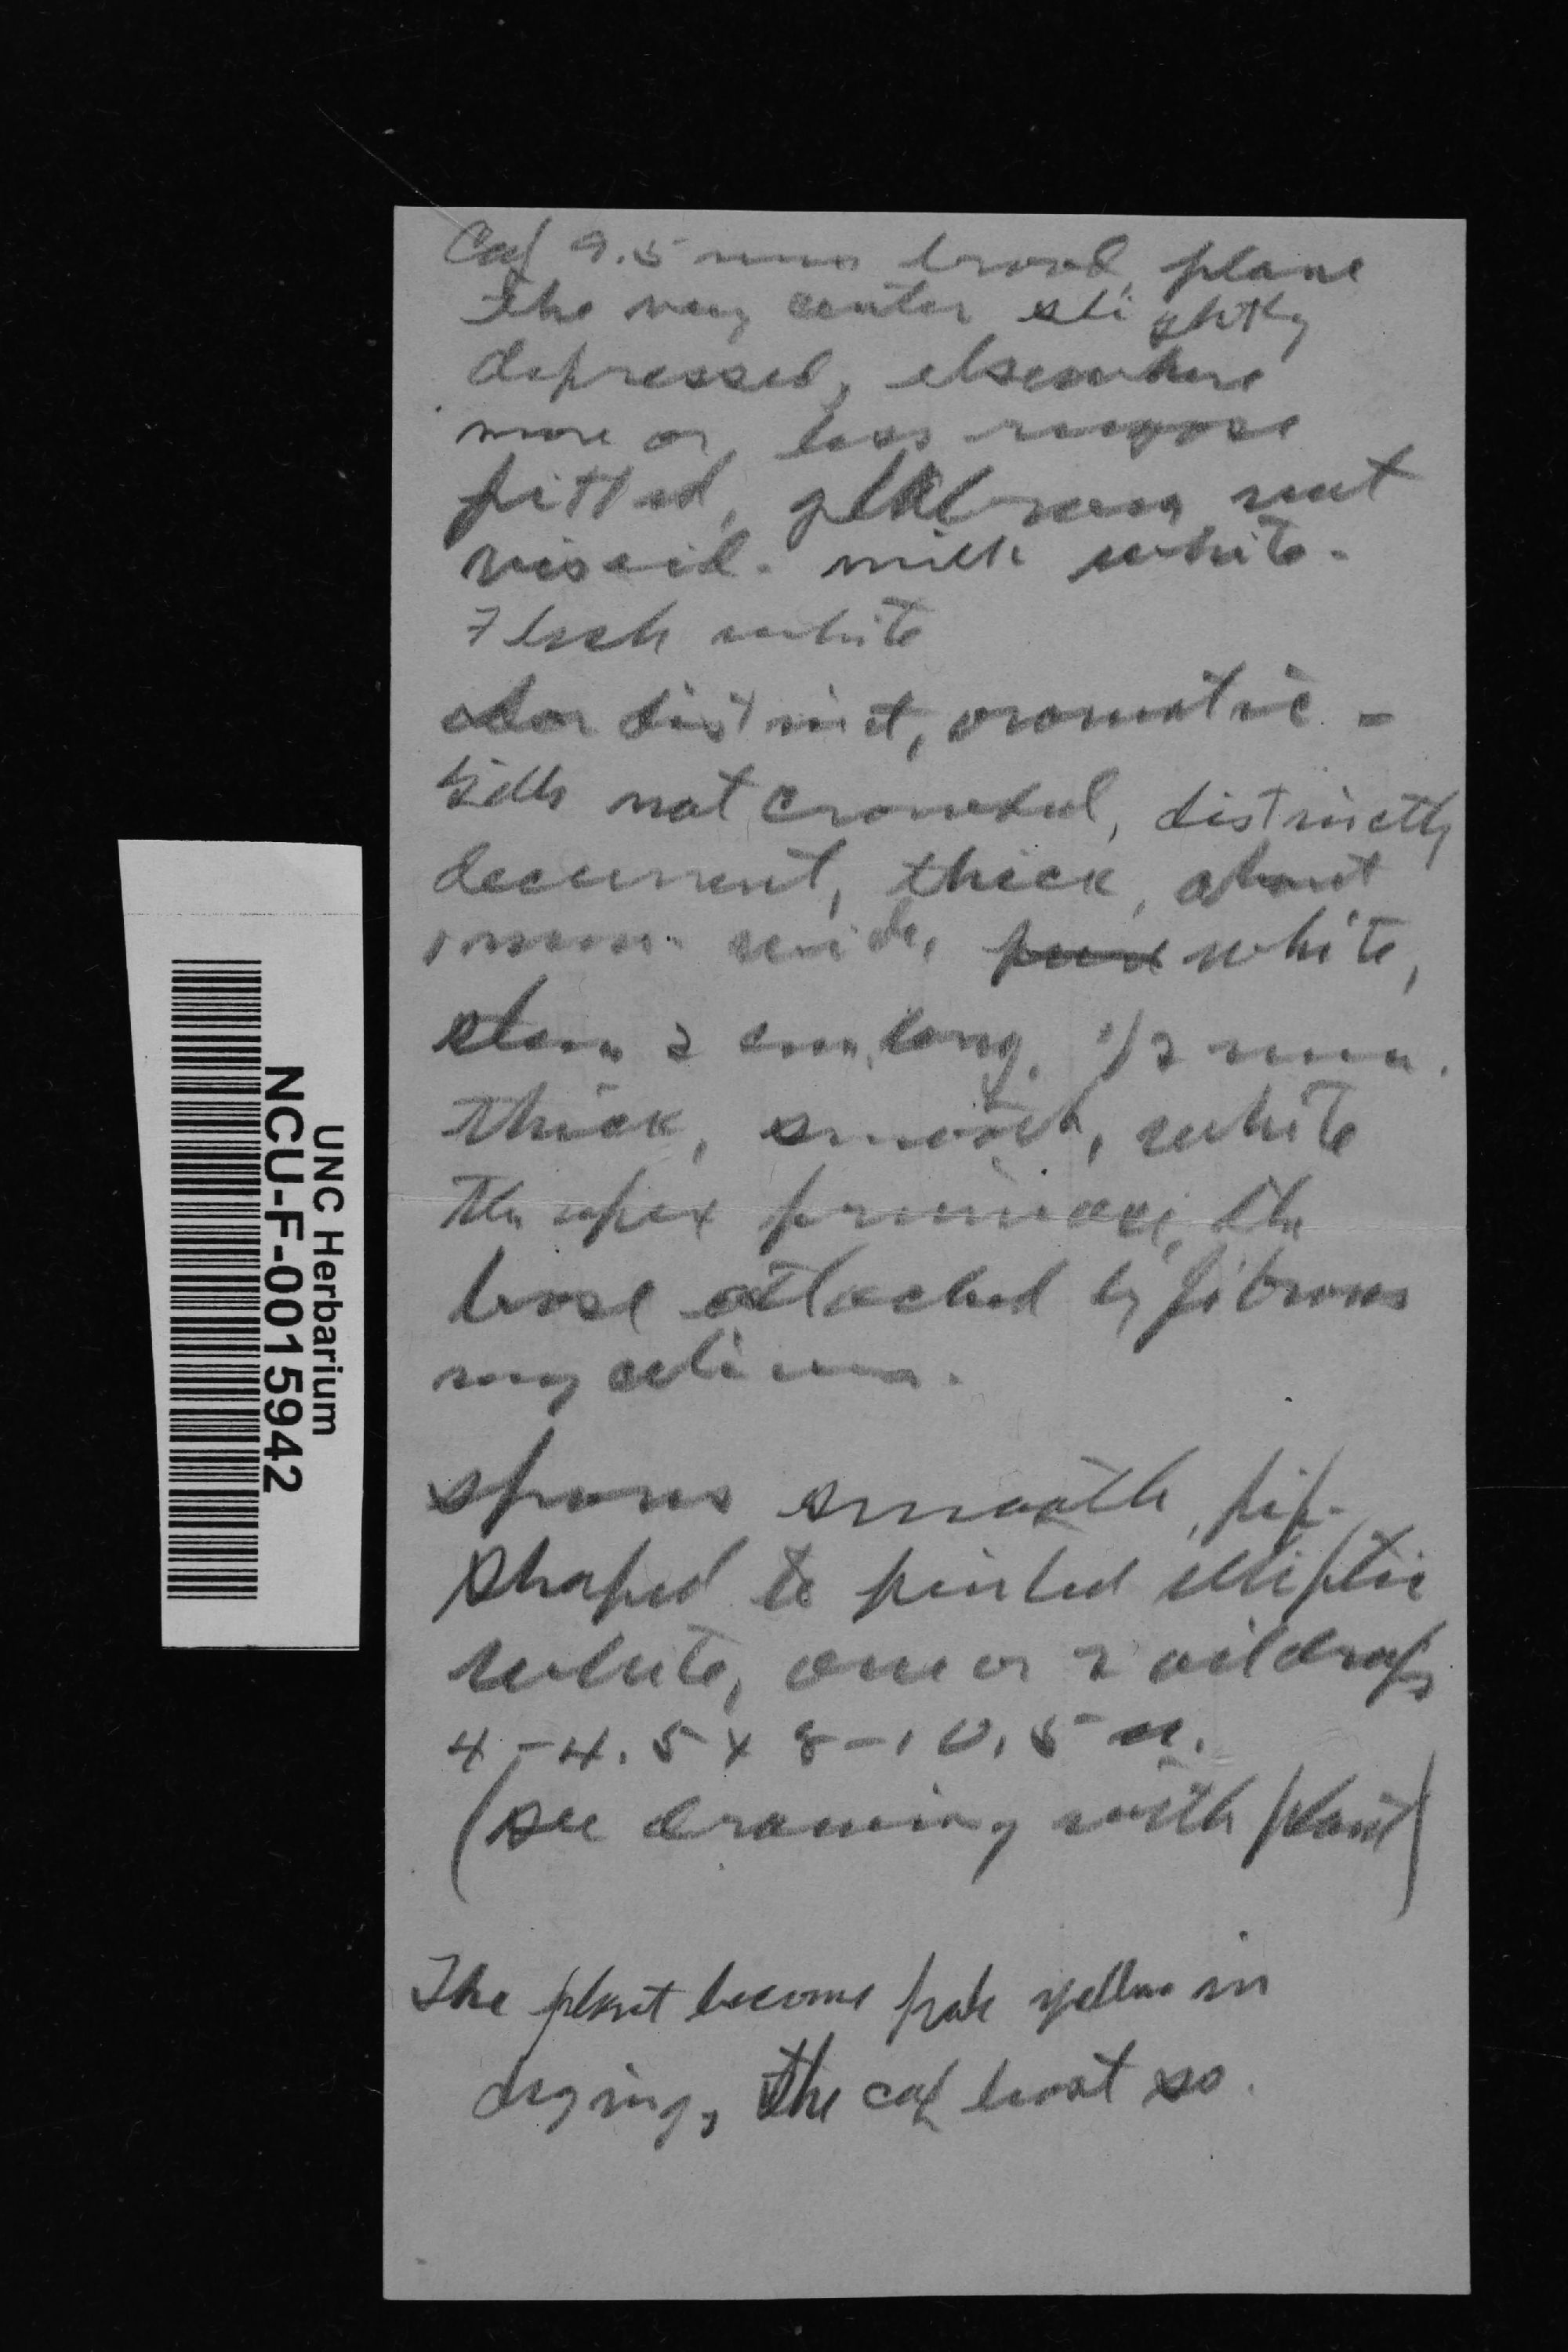 Cap 9.5 mm broad, plane
the very center slightly
depressed, elsewhere
more or less rugose
pitted, glabrous, not
viscid. milk white.
Flesh white
odor distinct, aromatic -
Gills not crowded, distinctly
decurrent, thick, about
1 mm. wide, pure white,
stem 2 cm. long, 1/2 mm.
thick, smooth, white
the apex pruinose, the
base attached by fibrous
mycelium.
spores smooth, pip-
shaped to pointed elliptic
white, one or 2 oildrops
4-4.5 x 8-10.5 u.
(see drawing with plant)
The plant become pale yellow in
drying, the cap least so.
UNC Herbarium
NCU-F-0015942